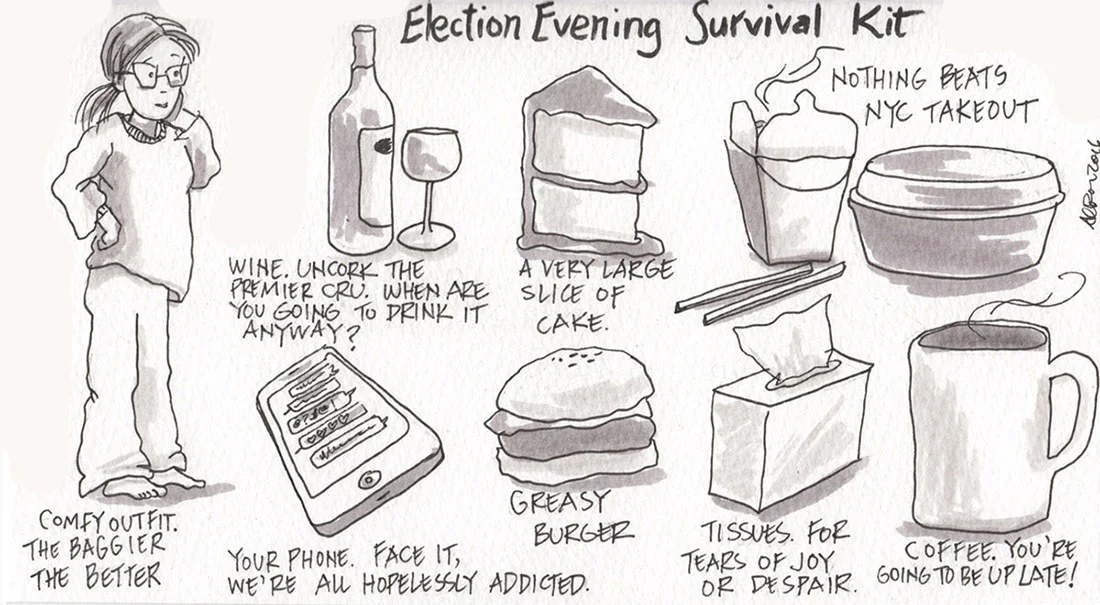 Election Evening Survival Kit
NOTHING BEATS
NYC TAKEOUT
WINE. UNCORK THE
PREMIER CRU. WHEN ARE
YOU GOING TO DRINK IT
ANYWAY?
A VERY LARGE
SLICE OF
CAKE.
COMFY OUTFIT.
THE BAGGIER
THE BETTER
YOUR PHONE. FACE IT,
WE'RE ALL HOPELESSLY ADDICTED.
GREASY
BURGER
TISSUES. FOR
TEARS OF JOY
OR DESPAIR.
COFFEE. YOU'RE
GOING TO BE UP LATE!